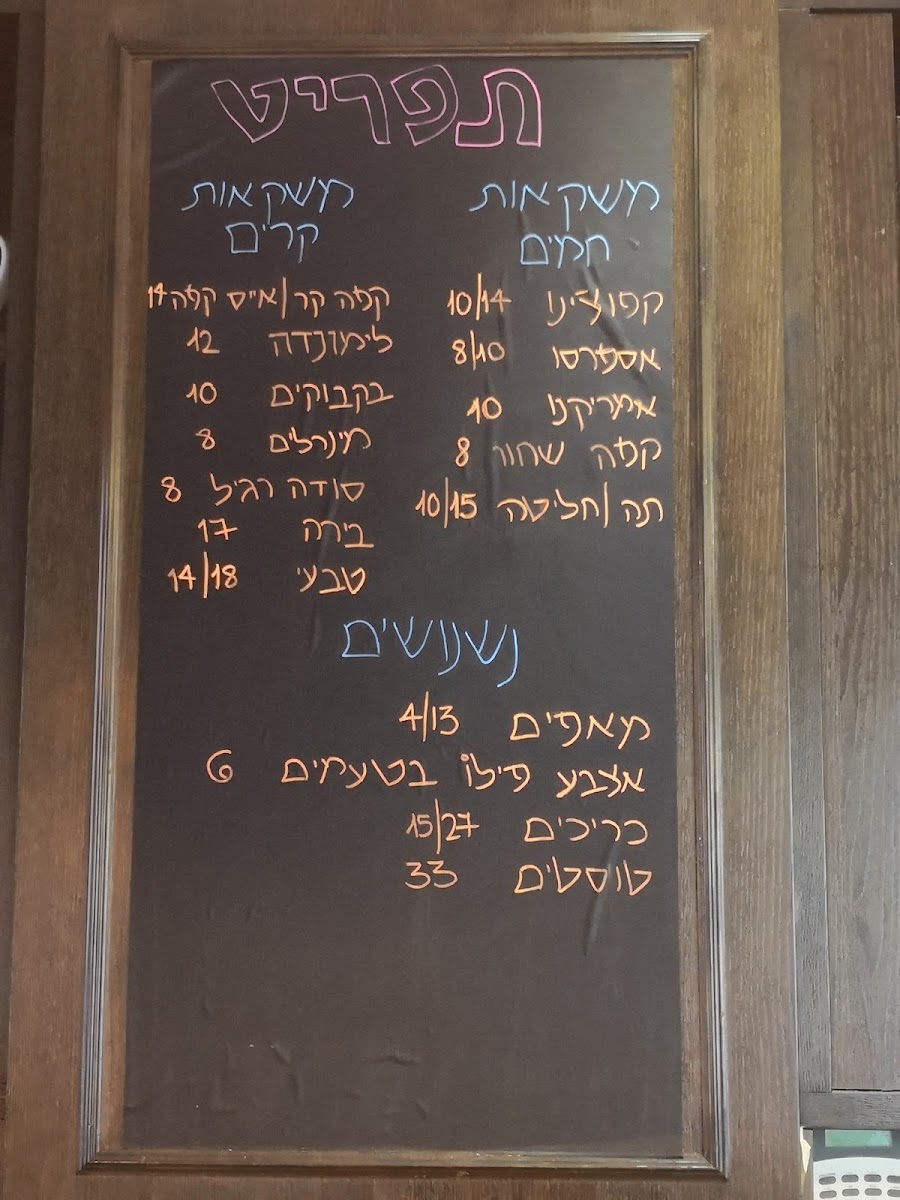 תפריט
משקאות
חמים
קפוצ'ינו 10/14
אספרסו 8/10
אמריקנו 10
קפה שחור 8
תה/חליטה 10/15
משקאות
קרים
קפה קר/אייס קפה 14
לימונדה 12
בקבוקים 10
מינרלים 8
סודה רגיל 8
בירה 17
טבעי 14/18
נשנושים
מאפים 4/13
אצבע פילו בטעמים 6
כריכים 15/27
טוסטים 33